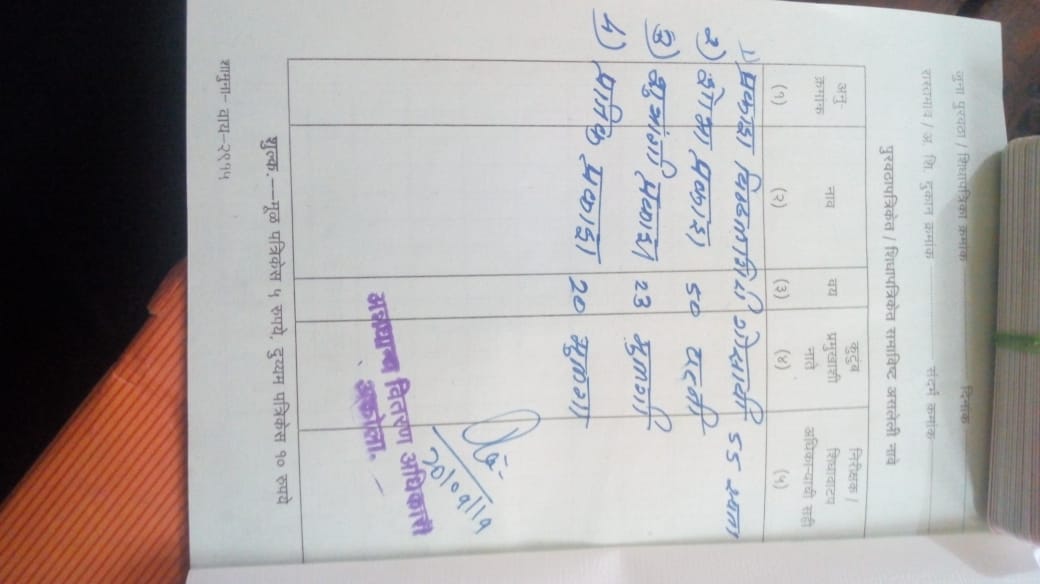 जुना पुरवठा / शिधापत्रिका क्रमांक दिनांक
रास्तभाव / अ. शि. दुकान क्रमांक संदर्भ क्रमांक
पुरवठापत्रिकेत / शिधापत्रिकेत समाविष्ट असलेली नावे
अनु-क्रमांक नाव वय कुटुंब प्रमुखाशी नाते निरीक्षक / शिधावाटप अधिकाऱ्याची सही
(१) (२) (३) (४) (५)
१) प्रकाश विठ्ठलगिरी गोसावी ५५ स्वतः
२) शोभा प्रकाश ५० पत्नी
३) शुभांगी प्रकाश २३ मुलगी
४) प्रतिक प्रकाश २० मुलगा
20/09/19
अन्नधान्य वितरण अधिकारी
अकोला.
शुल्क.—मूळ पत्रिकेस ५ रुपये, दुय्यम पत्रिकेस १० रुपये
शामुना- वाय-२९१५